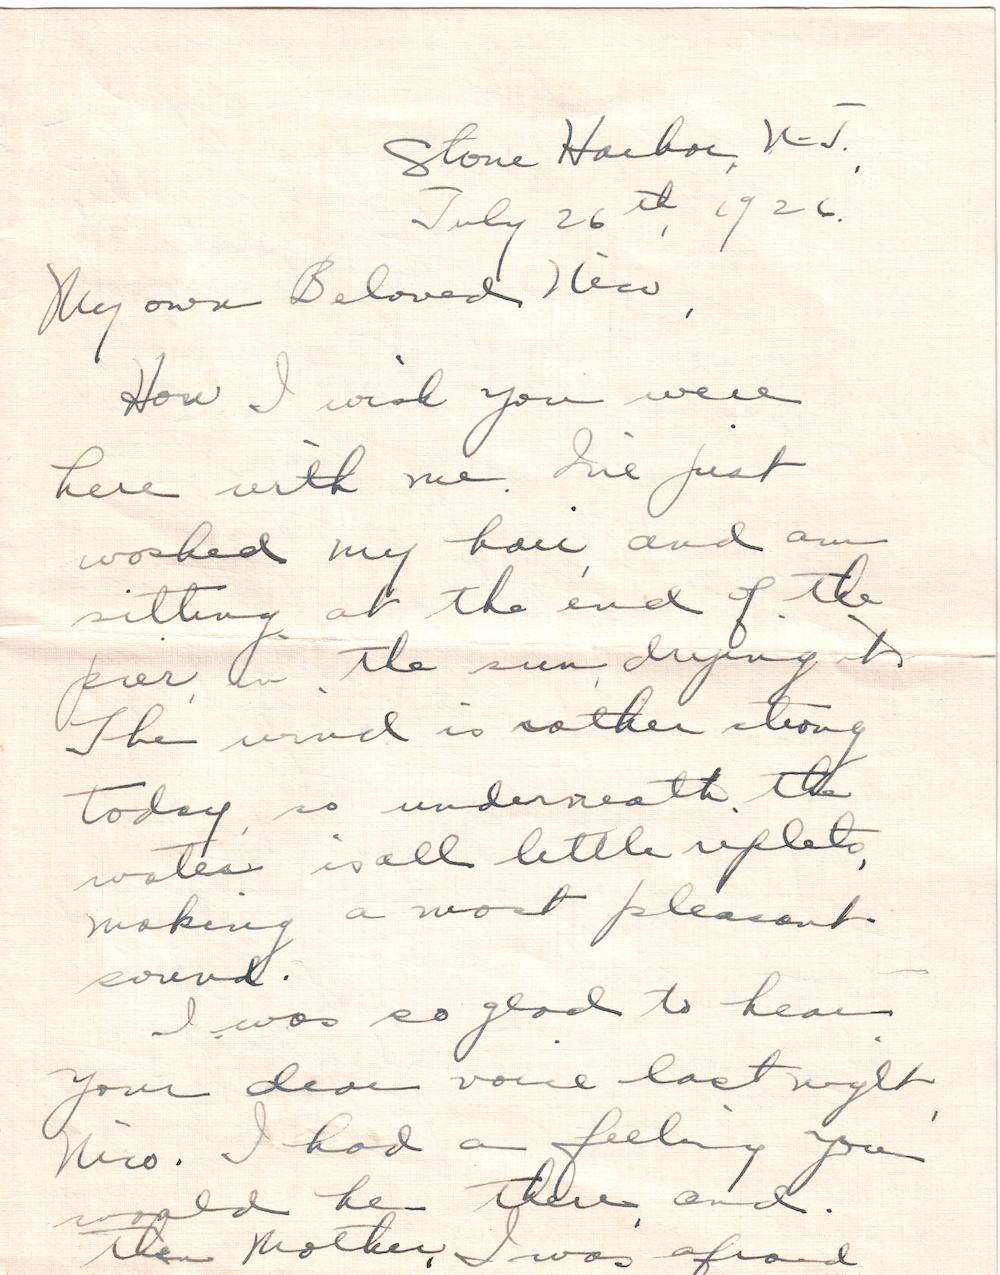 Stone Harbor, N-J.,
July 26th, 1926.
My own Beloved Nico,
How I wish you were
here with me. I've just
washed my hair, and am
sitting at the end of the
pier, in the sun, drying it.
The wind is rather strong
today, so underneath the
water is all little riplets,
making a most pleasant
sound.
I was so glad to hear
your dear voice last night,
Nico. I had a feeling you
would be there, and
then Mother, I was afraid